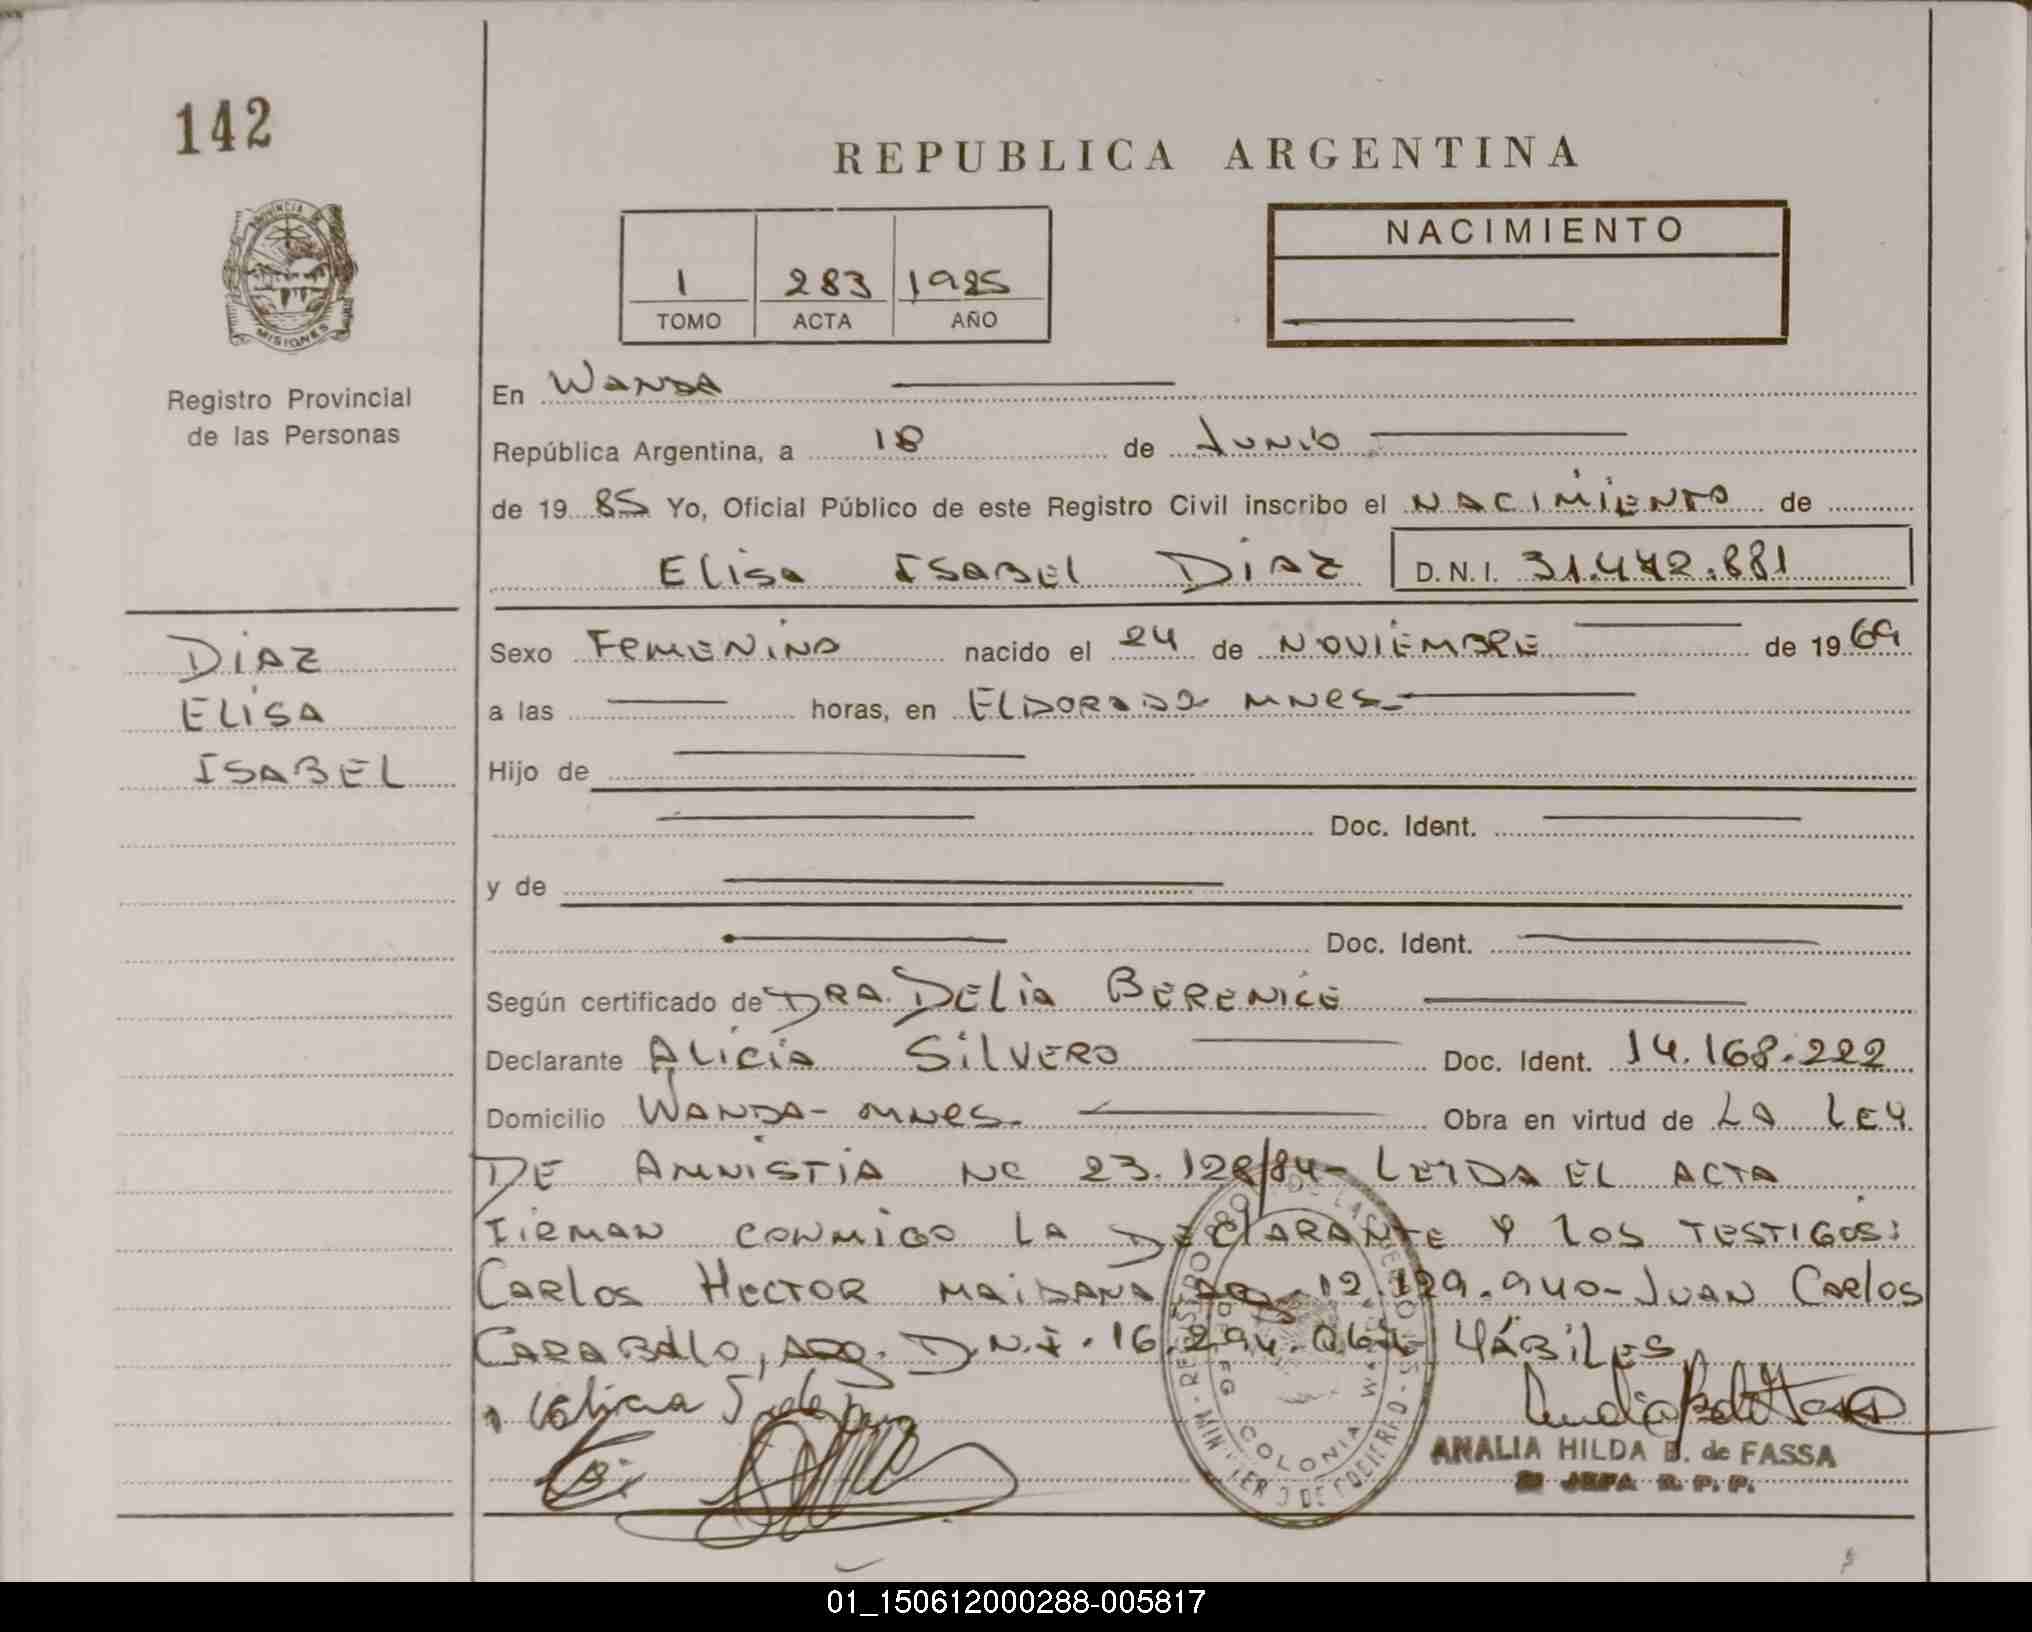 142
REPUBLICA ARGENTINA
PROVINCIA DE
MISIONES
Registro Provincial
de las Personas
1 283 1985
TOMO ACTA AÑO
NACIMIENTO
En Wanda
República Argentina, a 18 de Junio
de 19 85 Yo, Oficial Público de este Registro Civil inscribo el NACIMIENTO de
Elisa ISABEL DIAZ D.N.I. 31.442.881
DIAZ
ELISA
ISABEL
Sexo FEMENINO nacido el 24 de NOVIEMBRE de 19 69
a las horas, en ELDORADO MNES.
Hijo de
Doc. Ident.
y de
Doc. Ident.
Según certificado de DRA. DELIA BERENICE
Declarante ALICIA SILVERO Doc. Ident. 14.168.222
Domicilio WANDA - MNES. Obra en virtud de LA LEY
DE AMNISTIA Nº 23.128/84 - LEIDA EL ACTA
FIRMAN CONMIGO LA DECLARANTE Y LOS TESTIGOS:
CARLOS HECTOR MAIDANA 12.129.940 - JUAN CARLOS
CARABALLO, ARG. D.N.I. 16.294. HÁBILES
COLONIA
ANALIA HILDA B. de FASSA
JEFA R.P.P.
01_150612000288-005817